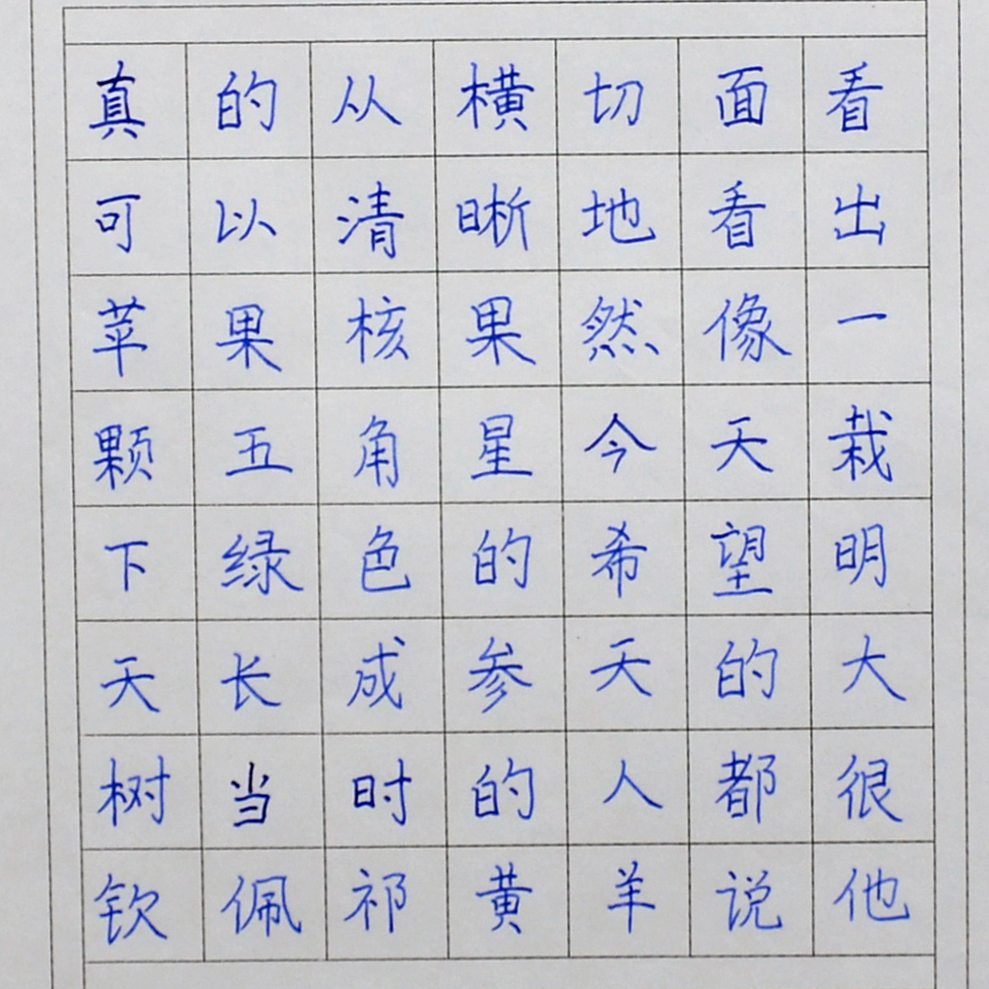 真的从横切面看
可以清晰地看出
苹果核果然像一
颗五角星今天栽
下绿色的希望明
天长成参天的大
树当时的人都很
钦佩祁黄羊说他